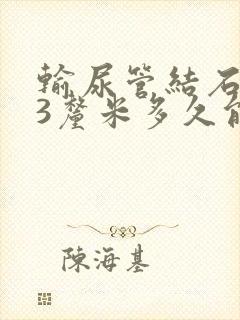 輸尿管結石
3釐米多久能
陳海基